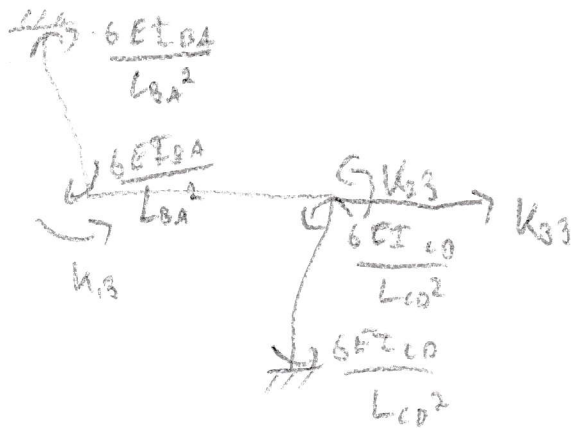 6EI_BA
L_BA²
6EI_BA
L_BA²
K₂₃
K₃₃
6EI_CD
L_CD²
K₁₃
6EI_CD
L_CD²